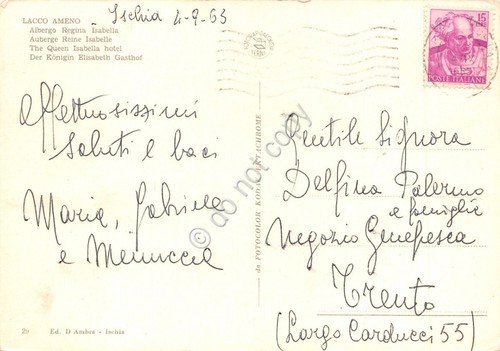 LACCO AMENO
Albergo Regina Isabella
Auberge Reine Isabelle
The Queen Isabella hotel
Der Königin Elisabeth Gasthof
Ischia 4-9-63
15
POSTE ITALIANE
Affettuosissimi
saluti e baci
Maria, Gabriella
e Meniccia
da FOTOCOLOR KODAK EKTACHROME
do not copy
Gentile Signora
Delfina Palermo
e famiglia
Negozio Genepesca
Trento
(Largo Carducci 55
29 Ed. D'Ambra - Ischia